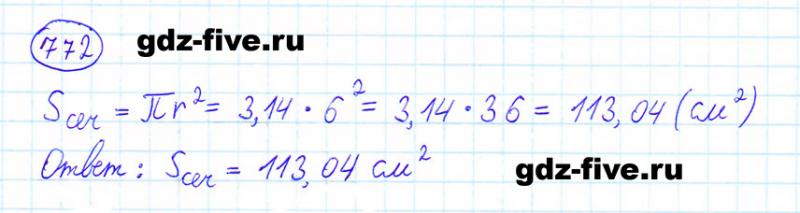 772 gdz-five.ru
Sсеч = πr² = 3,14 · 6² = 3,14 · 36 = 113,04 (см²)
Ответ: Sсеч = 113,04 см²
gdz-five.ru